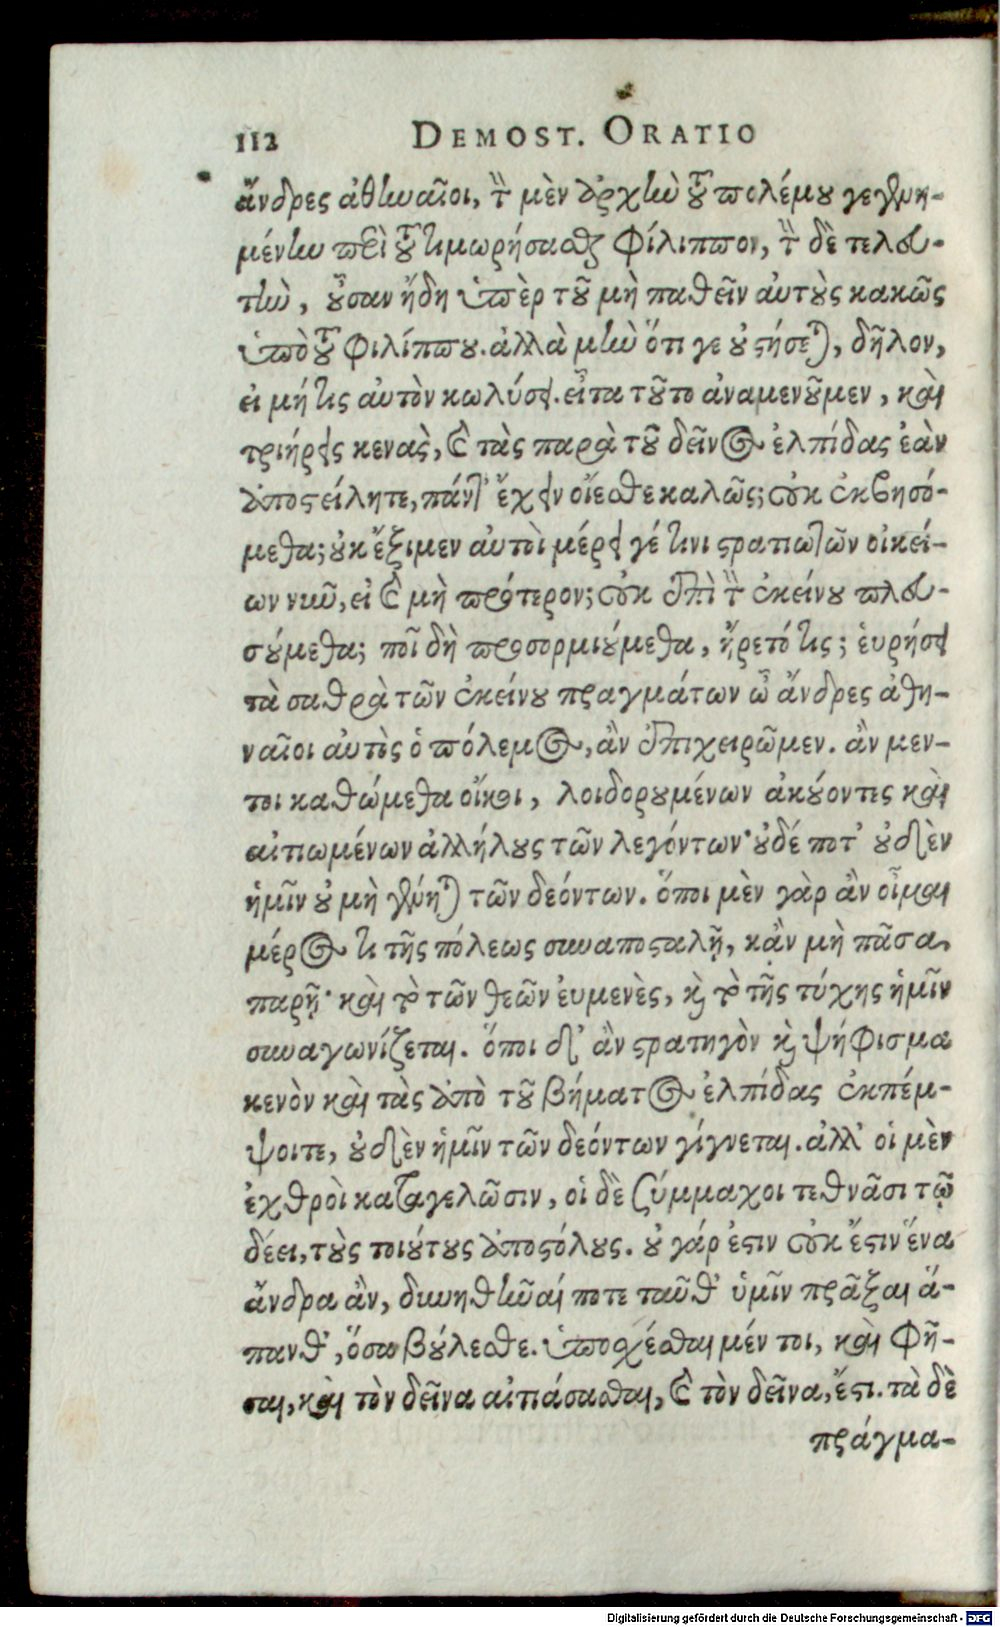 112 DEMOST. ORATIO
ἄνδρες ἀθηναῖοι, τὴν μὲν ἀρχὴν τοῦ πολέμου γεγενη-
μένην περὶ τοῦ τιμωρήσασθαι Φίλιππον, τὴν δὲ τελευ-
τὴν, οὖσαν ἤδη ὑπὲρ τοῦ μὴ παθεῖν αὐτοὺς κακῶς
ὑπὸ τοῦ Φιλίππου. ἀλλὰ μὴν ὅτι γε οὐ στήσεται, δῆλον,
εἰ μή τις αὐτὸν κωλύσει. εἶτα τοῦτο ἀναμενοῦμεν, καὶ
τριήρεις κενὰς, καὶ τὰς παρὰ τοῦ δεῖνος ἐλπίδας ἐὰν
ἀποστείλητε, πάντ' ἔχειν οἴεσθε καλῶς; οὐκ ἐκβησό-
μεθα; οὐκ ἔξιμεν αὐτοὶ μέρει γέ τινι στρατιωτῶν οἰκεί-
ων νῦν, εἰ καὶ μὴ πρότερον; οὐκ ἐπὶ τὴν ἐκείνου πλευ-
σούμεθα; ποῖ δὴ προσορμιούμεθα, ἤρετό τις; ἑυρήσει
τὰ σαθρὰ τῶν ἐκείνου πραγμάτων ὦ ἄνδρες ἀθη-
ναῖοι αὐτὸς ὁ πόλεμος, ἂν ἐπιχειρῶμεν. ἂν μεν-
τοι καθώμεθα οἴκοι, λοιδορουμένων ἀκούοντες καὶ
αἰτιωμένων ἀλλήλους τῶν λεγόντων· οὐδέ ποτ' οὐδὲν
ἡμῖν οὐ μὴ γένηται τῶν δεόντων. ὅποι μὲν γὰρ ἂν οἶμαι
μέρος τι τῆς πόλεως συναποσταλῇ, κἂν μὴ πᾶσα
παρῇ· καὶ τὸ τῶν θεῶν ἐυμενὲς, καὶ τὸ τῆς τύχης ἡμῖν
συναγωνίζεται. ὅποι δ' ἂν στρατηγὸν καὶ ψήφισμα
κενὸν καὶ τὰς ἀπὸ τοῦ βήματος ἐλπίδας ἐκπέμ-
ψοιτε, οὐδὲν ἡμῖν τῶν δεόντων γίγνεται. ἀλλ' οἱ μὲν
ἐχθροὶ καταγελῶσιν, οἱ δὲ ξύμμαχοι τεθνᾶσι τῷ
δέει, τοὺς τοιούτους ἀποστόλους. οὐ γάρ ἐστιν οὐκ ἔστιν ἕνα
ἄνδρα ἂν, δυνηθῆναί ποτε ταῦθ' ὑμῖν πρᾶξαι ἅ-
πανθ', ὅσα βούλεσθε. ὑποσχέσθαι μέν τοι, καὶ φῆ-
σαι, καὶ τὸν δεῖνα αἰτιάσασθαι, καὶ τὸν δεῖνα, ἔστι. τὰ δὲ
πράγμα-
Digitalisierung gefördert durch die Deutsche Forschungsgemeinschaft - DFG